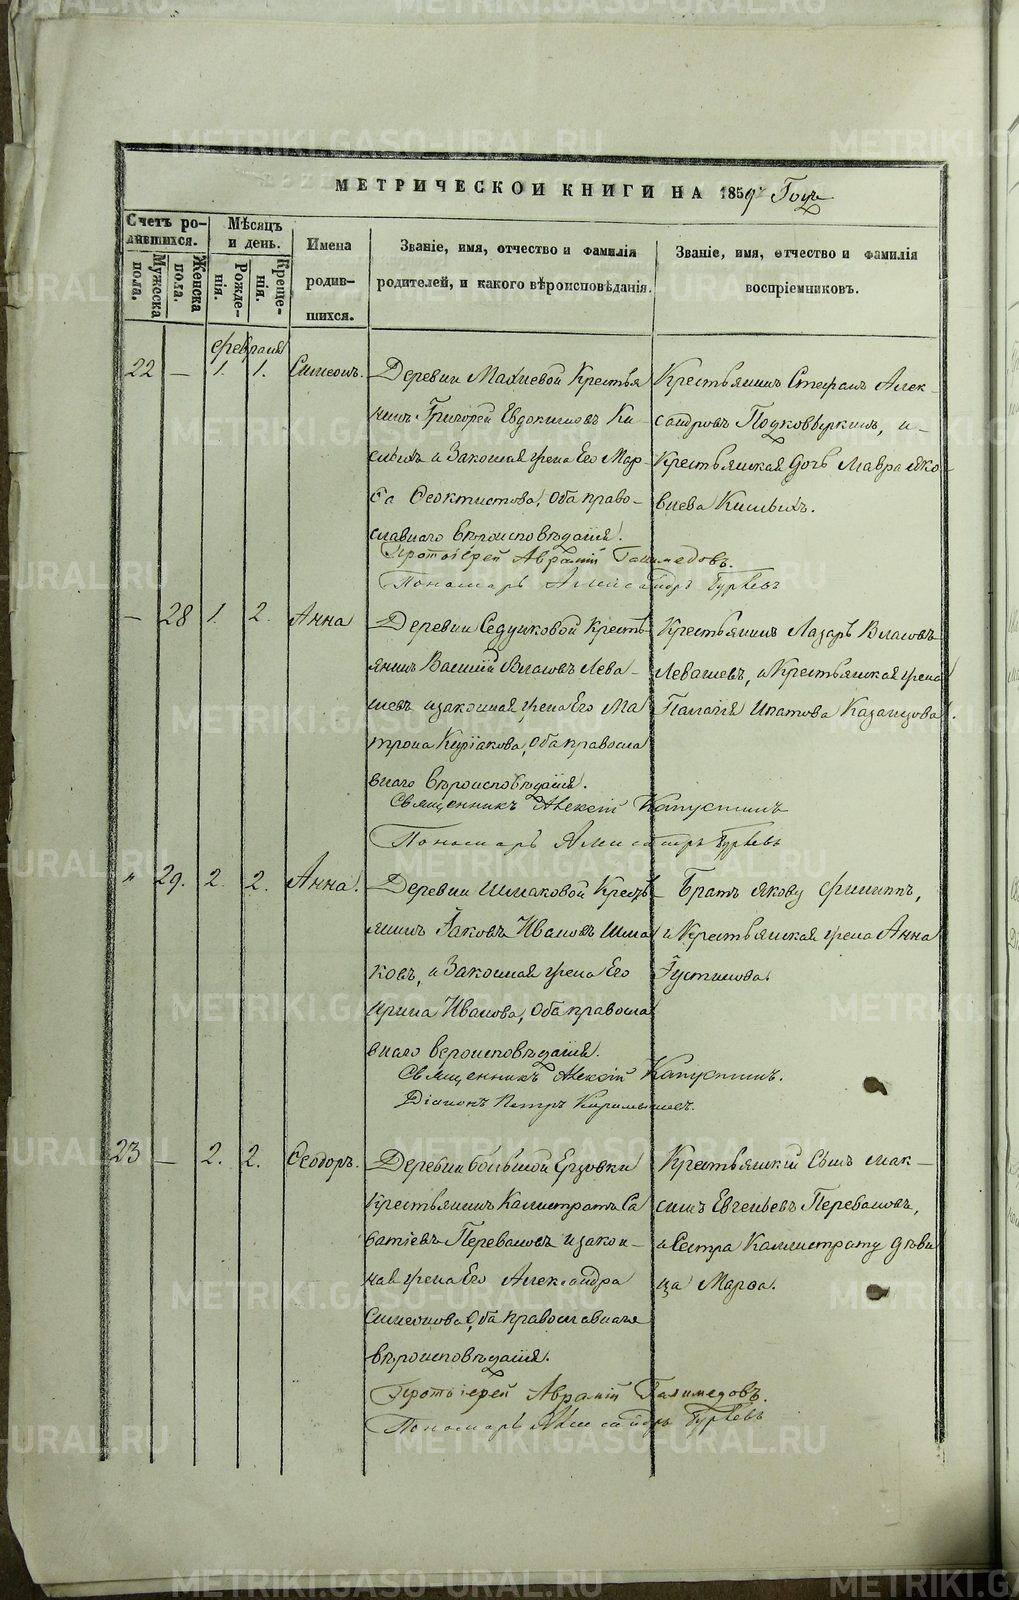 МЕТРИЧЕСКОЙ КНИГИ НА 1859й Годъ
Счетъ ро-
дившихся.
Мужеска
пола.
Женска
пола.
Мѣсяцъ
и день.
Рожде-
нія.
Креще-
нія.
Имена
родив-
шихся.
Званіе, имя, отчество и фамилія
родителей, и какого вѣроисповѣданія.
Званіе, имя, отчество и фамилія
воспріемниковъ.
февраля
22 — 1. 1. Симеонъ.
Деревни Махневой Крестья
нинъ Григорей Евдокимовъ Ки
словъ и Законная жена Его Мар
ѳа Ѳеоктистова, Оба право-
славнаго вѣроисповѣданія.
Протоіерей Аврамій
Пономарь Александръ Гурьевъ
Крестьянинъ Стефанъ Алек-
сандровъ Подковыркинъ, и-
Крестьянская дочь Мавра Яко-
влева
— 28 1. 2. Анна
Деревни Седунковой Кресть
янинъ Василій Власовъ Лева-
шевъ и законная жена Его Ма
трона Киріакова, Оба правосла
внаго вѣроисповѣданія.
Священникъ Алексій Капустинъ
Пономарь Александръ Гурьевъ
Крестьянинъ Лазарь Власовъ
Левашевъ, и Крестьянская жена
Палагія Ипатова Казанцова.
„ 29. 2. 2. Анна.
Деревни Шмаковой Кресть
янинъ Іаковъ Ивановъ Шма
ковъ, и Законная жена Его
Ирина Иванова, Оба правосла
внаго вероисповѣданія.
Священникъ Алексій Капустинъ.
Діаконъ Петръ
Братъ Якову Филиппъ,
и Крестьянская жена Анна
Іустинова.
23 — 2. 2. Ѳеодоръ.
Деревни большой Ерзовки
Крестьянинъ Каллистратъ Са
ватіевъ Переваловъ и закон-
ная жена Его Александра
Симеонова, Оба православнаго
вѣроисповѣданія.
Протоіерей Аврамій
Пономарь Александръ Гурьевъ
Крестьянскій Сынъ Мак-
симъ Евгеньевъ Переваловъ,
и Сестра Каллистрату дѣви
ца Марѳа.
METRIKI.GASO-URAL.RU